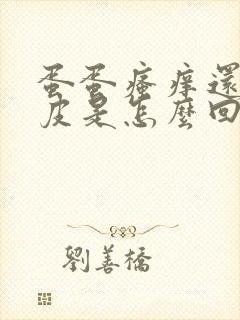 蛋蛋瘙癢還
皮是怎麼回
劉善橋